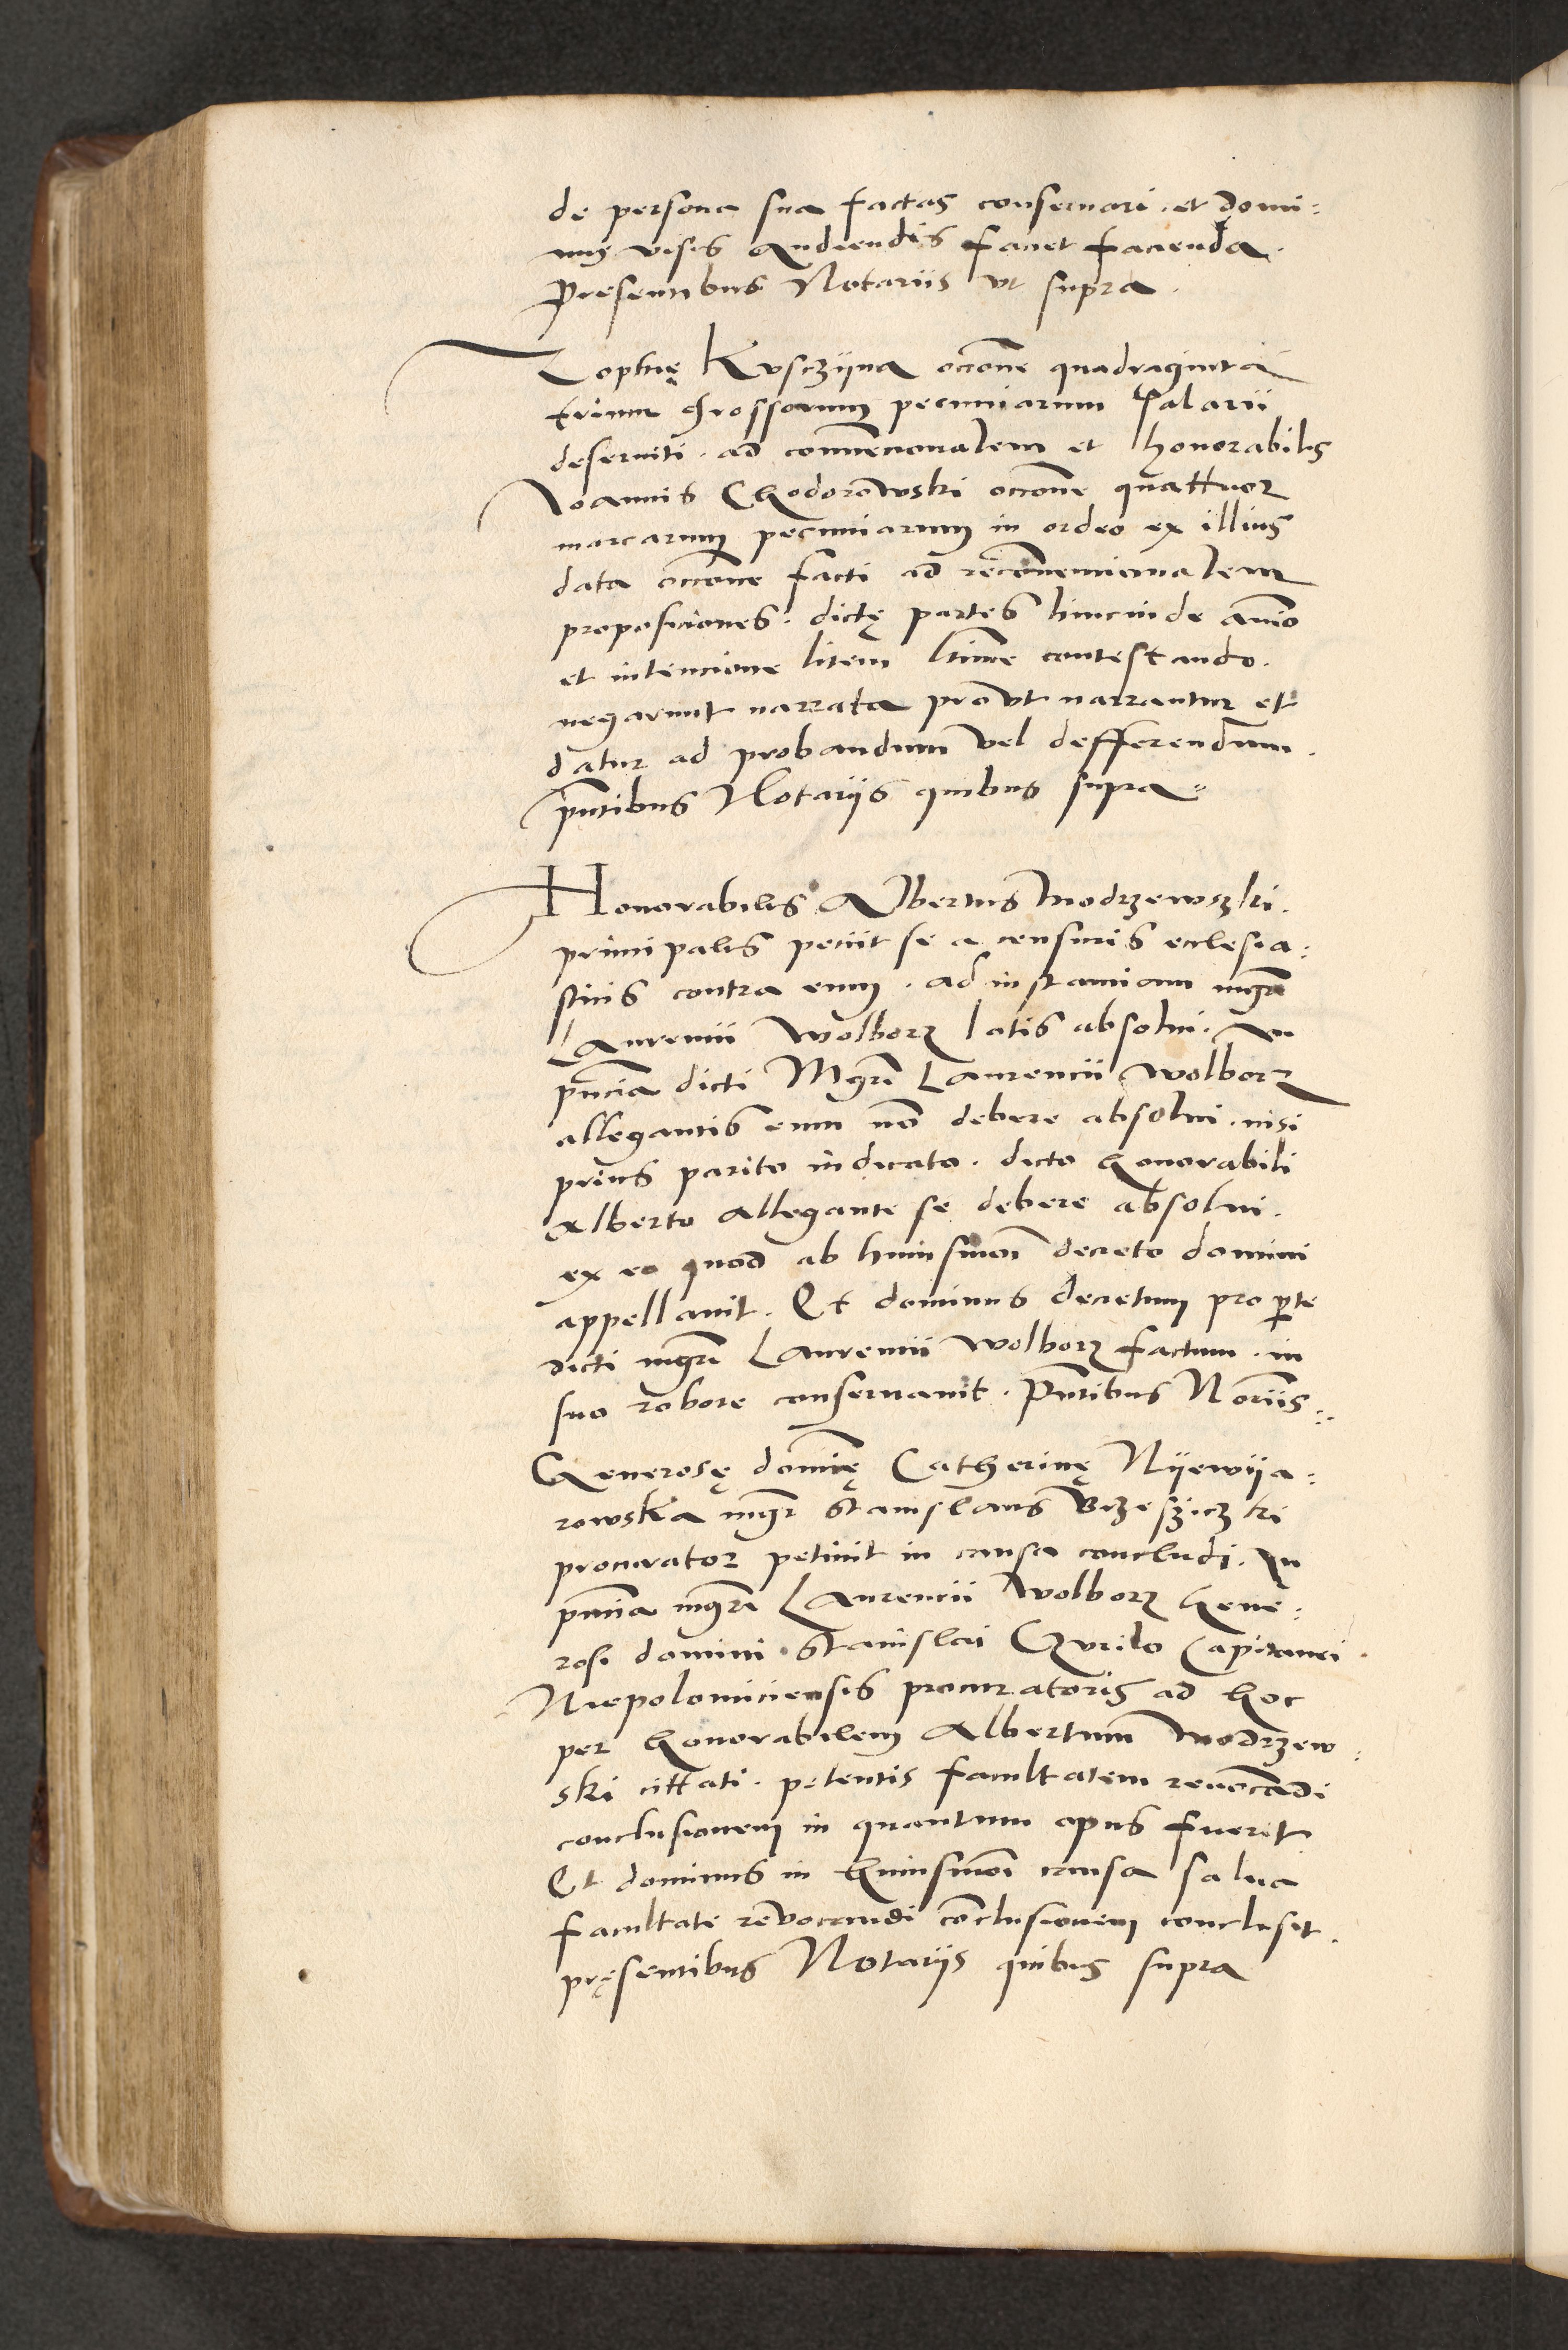 de persona sua factas conseruari. et domi:
nus visis audiendis faciet facienda.
Presentibus Notariis vt supra.
Zophię Kvsczijna occone quadraginta
trium grossorum pecuniarum Salarii
deseruiti. ad conuencionalem et honorabilis
Joannis Chodorowski occone quattuor
marcarum pecuniarum in ordeo ex illius
data occone facti ad reconuencionalem
proposiciones. dictę partes hincinde animo
et intencione litem ltime contestando.
negarunt narrata pro vt narrantur et
datur ad probandum vel defferendum.
pntibus Notarijs quibus supra
Honorabilis Albertus Modrzewszki.
principalis peciit se a censuris ecclesia:
sticis contra eum. ad instanciam mgri
Laurencii Wolborz latis absolui. In
pncia dicti Mgri Laurencii Wolborz
allegantis eum non debere absolui. nisi
prius parito iudicato. dicto honorabili
Alberto allegante se debere absolui.
ex eo quod ab huiusmoi decreto domini
appellauit. Et dominus decretum pro parte
dicti mgri Laurencii Wolborz factum. in
suo robore conseruauit. Pntibus Noriis
Generosę domię Catherinę Nijewija:
rowska mgr Stanislaus Brzesziczki
procurator petiuit in causa concludi. In
pncia mgri Laurencii Wolborz Gene:
rosi domini Stanislai Czvrilo Capitanei
Niepolomiciensis procuratoris ad hoc
per honorabilem Albertum Modrzew:
ski cittati. petentis facultatem reuocandi
conclusionem in quantum opus fuerit
Et dominus in huiusmoi causa salua
facultate revocandi conclusionem conclusit.
pręsentibus Notarijs quibus supra